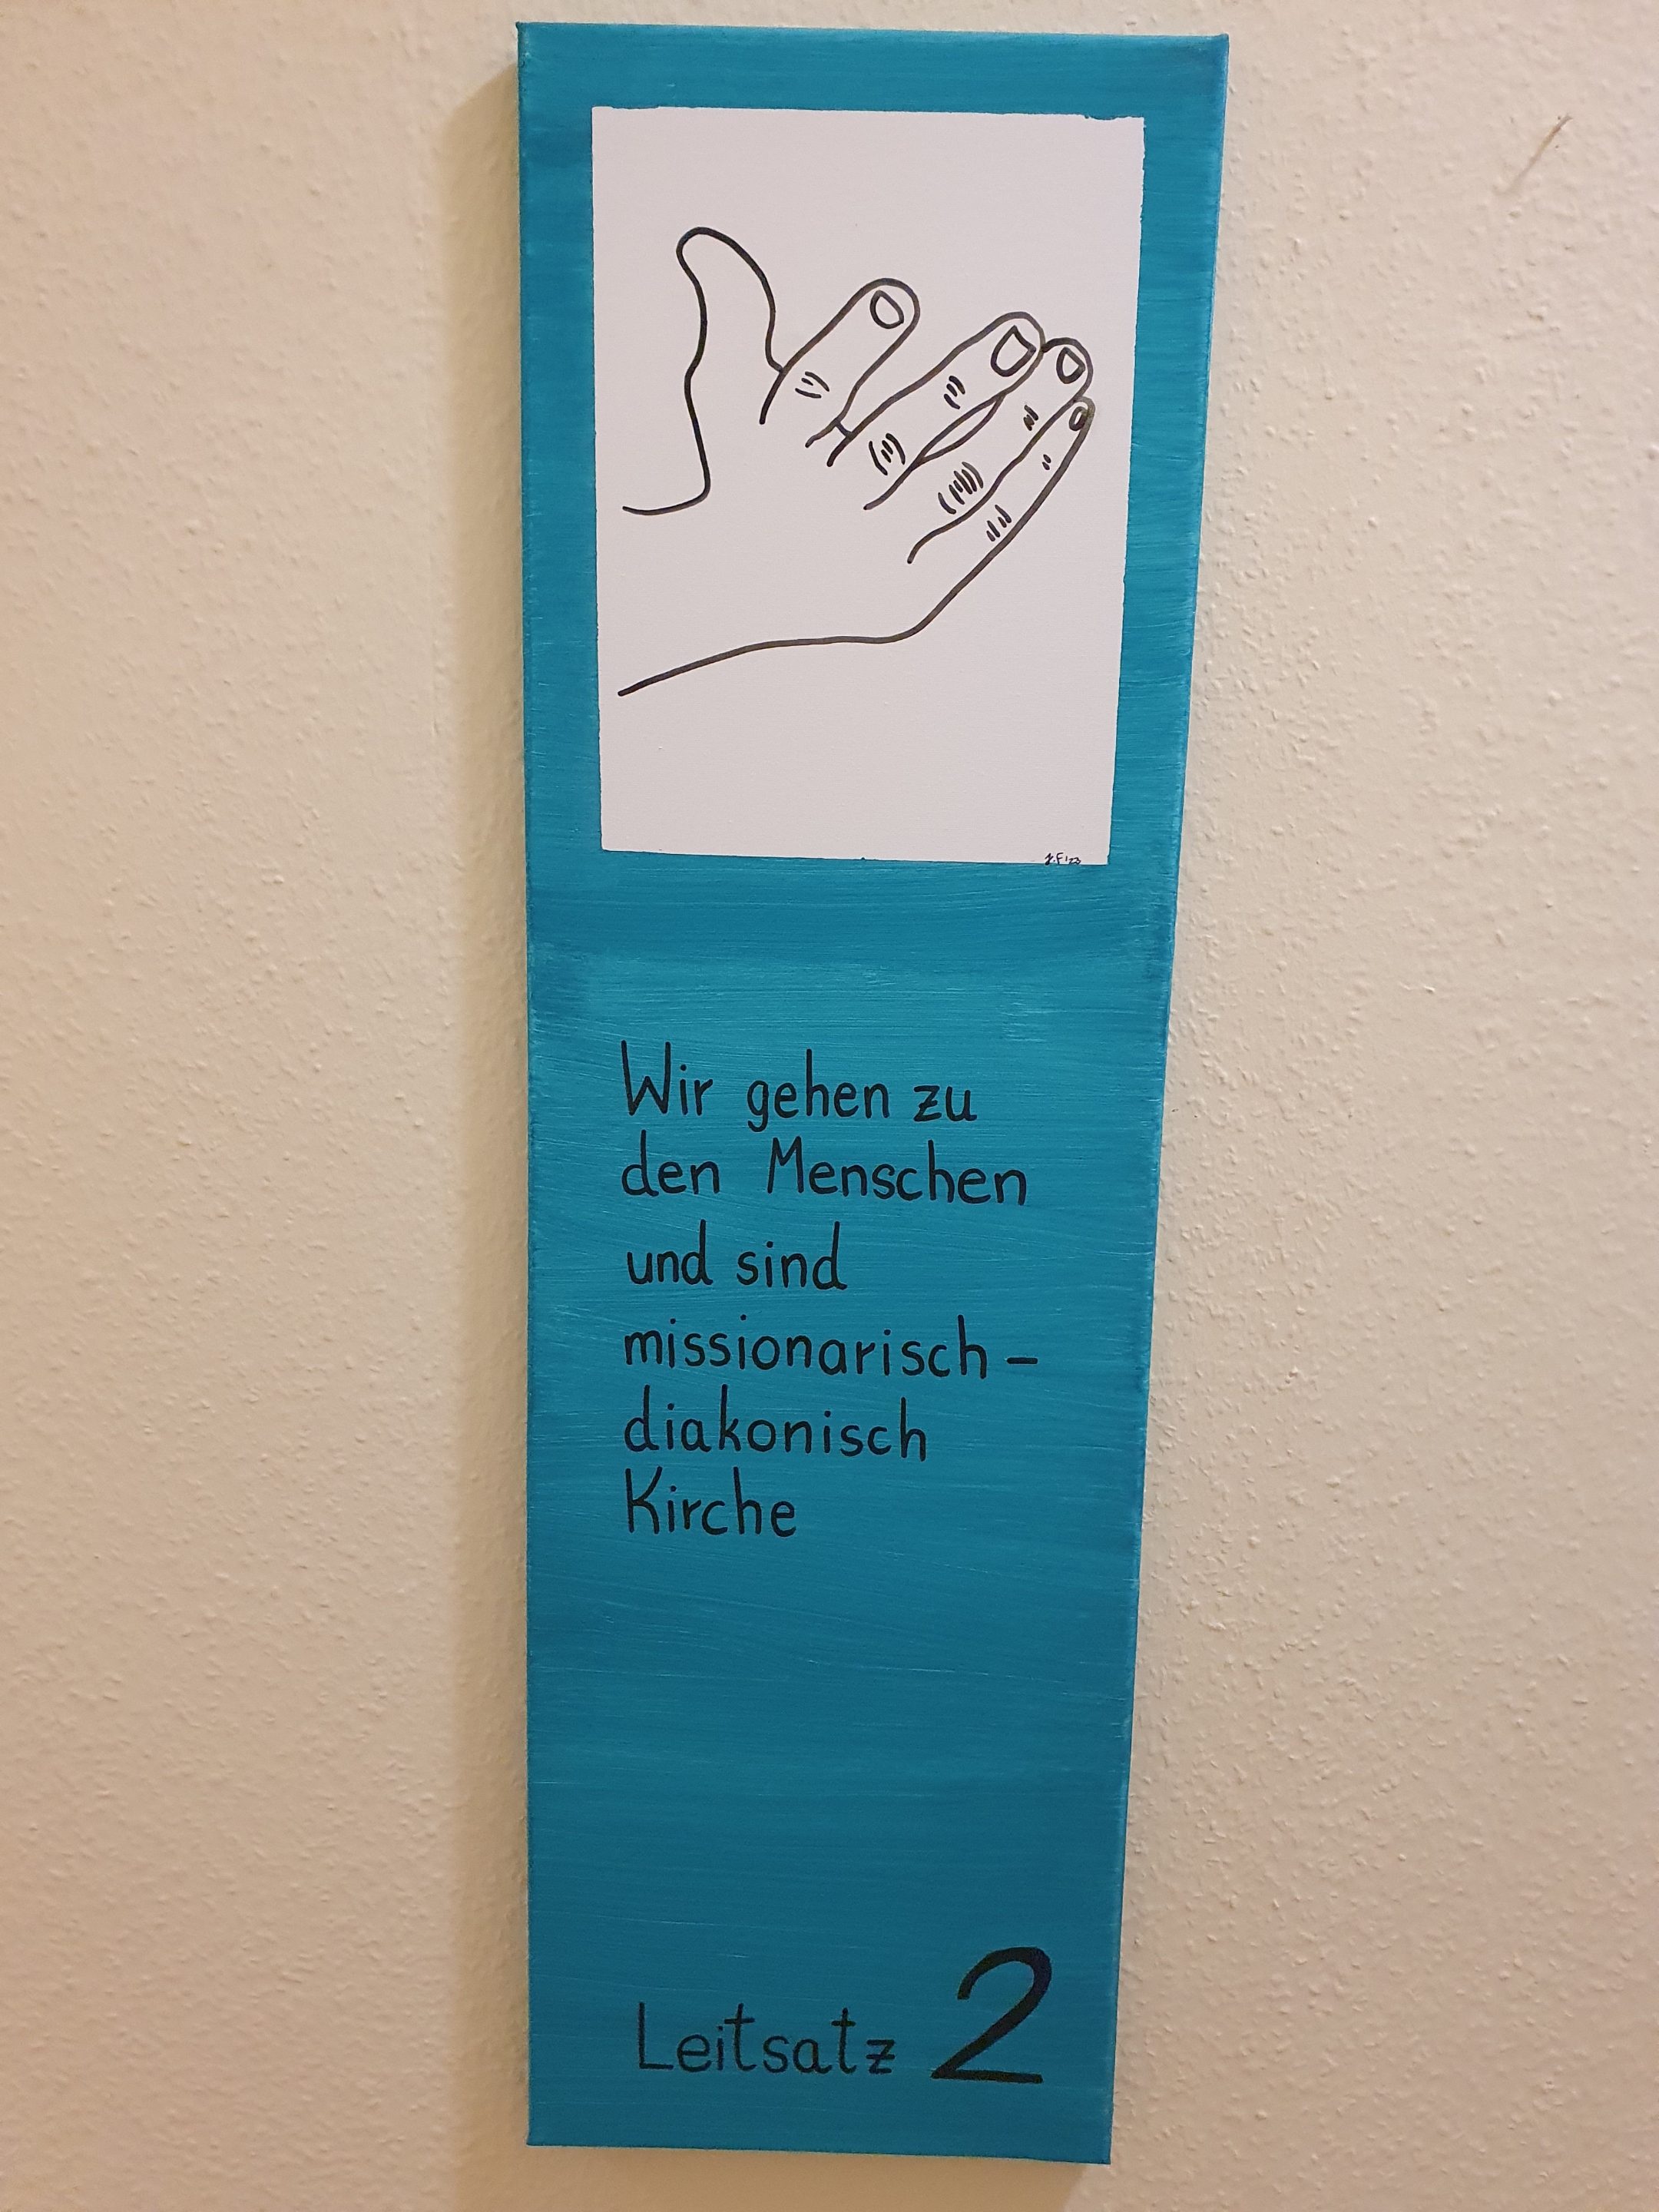 J.F'23
Wir gehen zu
den Menschen
und sind
missionarisch -
diakonisch
Kirche
Leitsatz 2